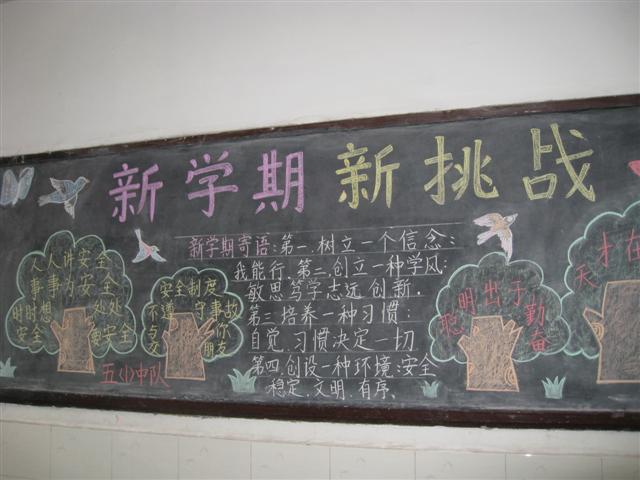 新学期 新挑战
新学期寄语:第一.树立一个信念:
我能行.第二.创立一种学风:
敏思笃学志远创新.
第三.培养一种习惯:
自觉.习惯决定一切
第四.创设一种环境:安全
稳定.文明.有序.
人人讲安全
事事为安全
时时想 处处
安全 要安全
安全制度
不遵守事故
与你
交朋友
五(1)中队
聪明出于勤奋
天才在